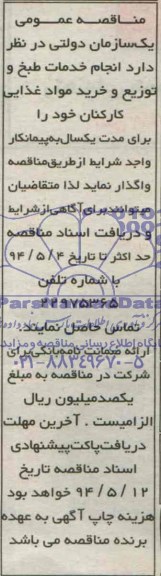 مناقصه عمومی
یک‌سازمان دولتی در نظر
دارد انجام خدمات طبخ و
توزیع و خرید مواد غذایی
کارکنان خود را
برای مدت یکسال‌به‌پیمانکار
واجد شرایط ازطریق‌مناقصه
واگذار نماید لذا متقاضیان
میتوانندبرای‌آگاهی‌ازشرایط
و دریافت اسناد مناقصه
حد اکثر تا تاریخ ۹۴/۵/۴
با شماره تلفن
۲۲۹۷۵۳۶۵
تماس حاصل نمایند.
ارائه ضمانت نامه‌بانکی‌برای
۰۲۱-۸۸۳۴۹۶۷۰-۵
شرکت در مناقصه به مبلغ
یکصدمیلیون ریال
الزامیست . آخرین مهلت
دریافت‌پاکت‌پیشنهادی
اسناد مناقصه تاریخ
۹۴/۵/۱۲ خواهد بود
هزینه چاپ آگهی به عهده
برنده مناقصه می باشد